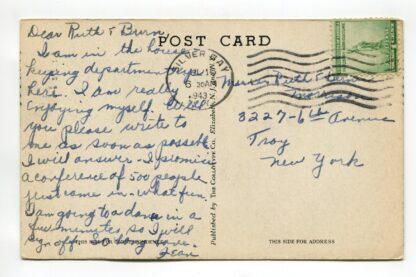 POST CARD
Dear Ruth & Burn
I am in the house
keeping department up
here. I am really
enjoying myself. Will
you please write to
me as soon as possible
I will answer - I promise
a conference of 500 people
just came in - what fun.
I am going to a dance in a
few minutes so I will
sign off. So long now.
Jean
SILVER BAY
1943
Ruth
3227-6th Avenue
Troy
New York
THIS SIDE FOR ADDRESS